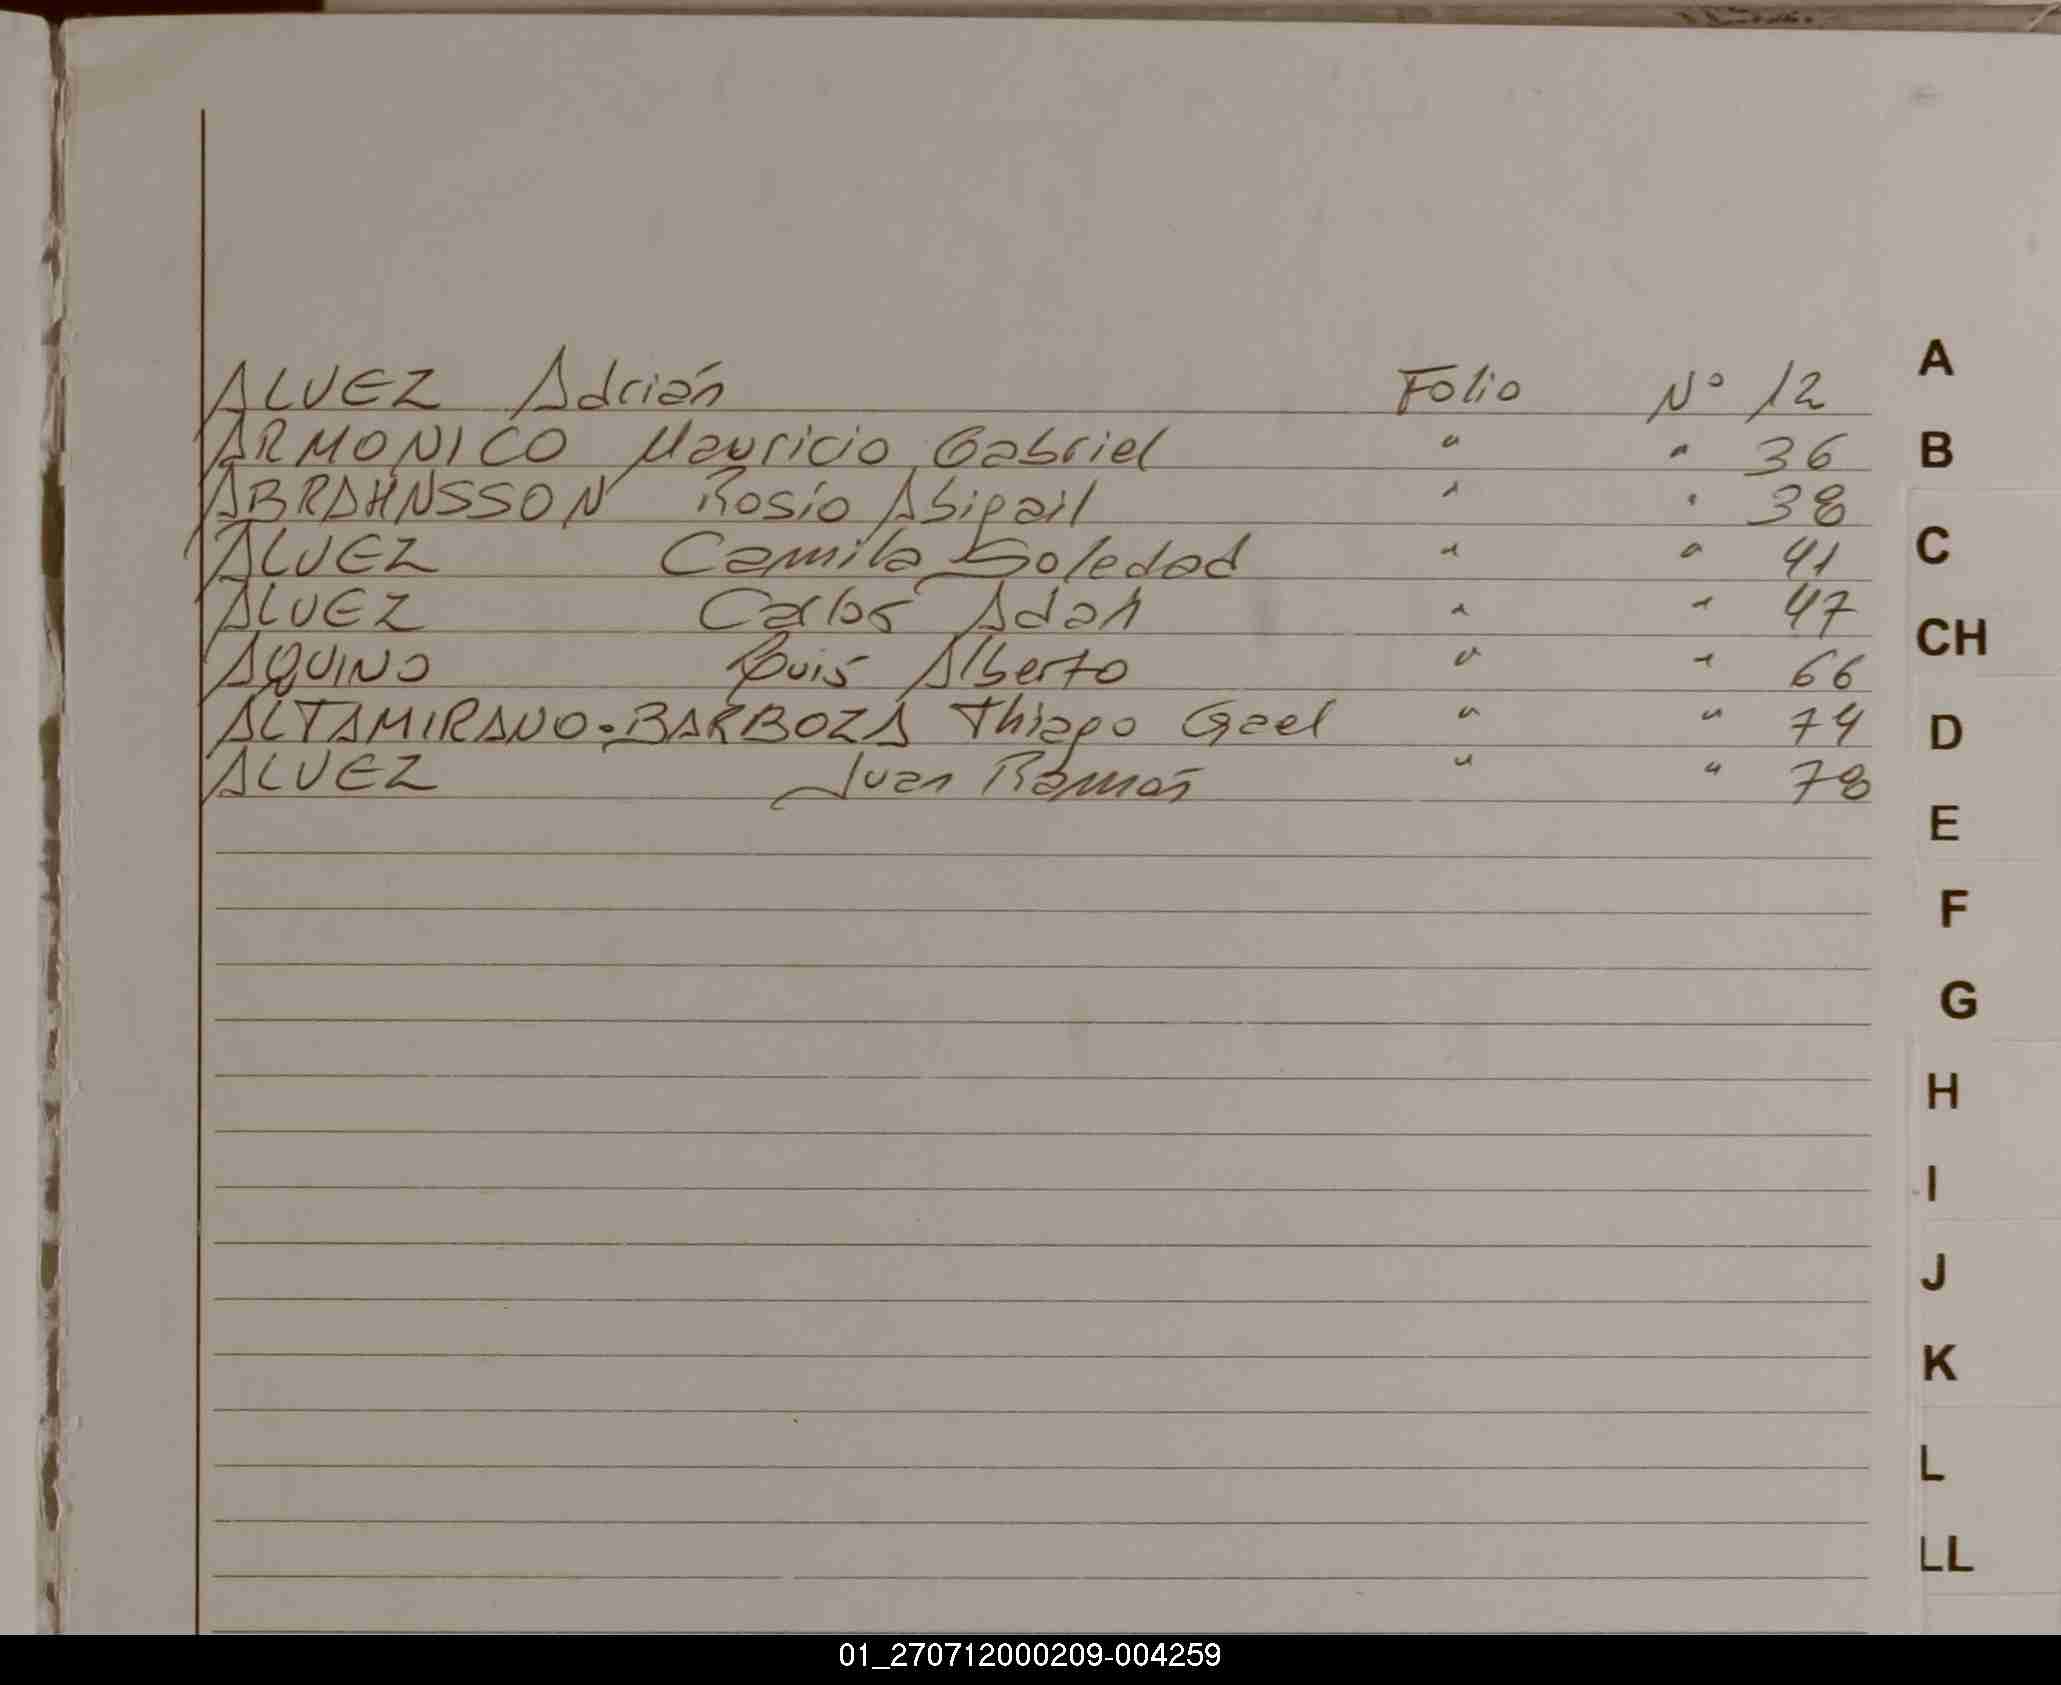 ALVEZ Adrián Folio Nº 12
ARMONICO Mauricio Gabriel " " 36
ABRAHNSSON Rosío Abigail " " 38
ALVEZ Camila Soledad " " 41
ALVEZ Carlos Adan " " 47
AQUINO Luis Alberto " " 66
ALTAMIRANO-BARBOZA Thiago Gael " " 74
ALVEZ Juan Ramón " " 78
A
B
C
CH
D
E
F
G
H
I
J
K
L
LL
01_270712000209-004259